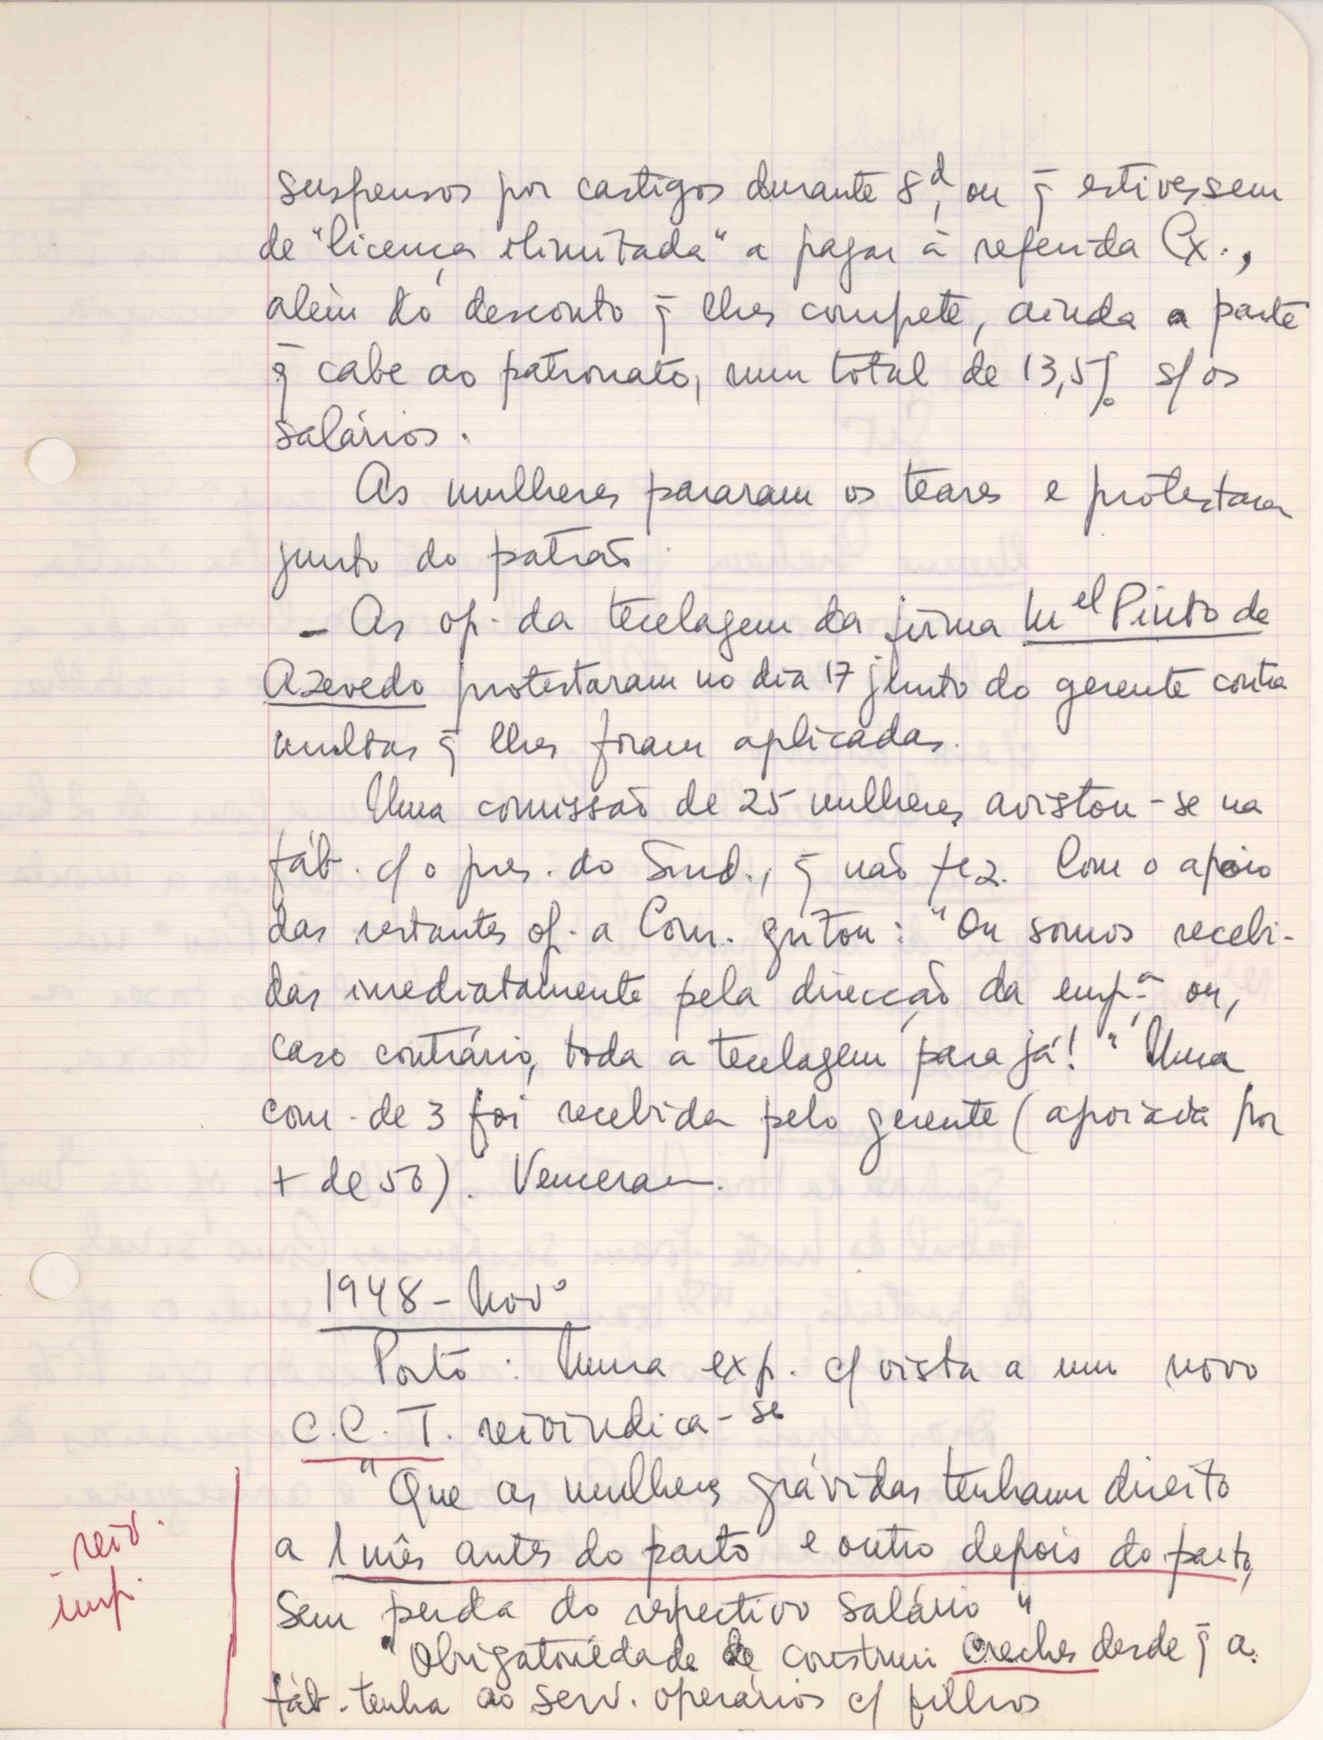 suspensos por castigos durante 8d, ou q̄ estivessem
de "licença ilimitada" a pagar à referida Cx.,
além do desconto q̄ lhes compete, ainda a parte
q̄ cabe ao patronato, num total de 13,5% s/ os
salários.
As mulheres pararam os teares e protestaram
junto do patrão.
- As op. da tecelagem da firma Mel Pinto de
Azevedo protestaram no dia 17 junto do gerente contra
multas q̄ lhes foram aplicadas.
Uma comissão de 25 mulheres avistou-se na
fáb. c/ o pres. do Sind., q̄ não fez. Com o apoio
das restantes op. a Com. gritou: "Ou somos recebi-
das imediatamente pela direcção da emp.a ou,
caso contrário, toda a tecelagem para já!" Uma
com. de 3 foi recebida pelo gerente (apoiada por
+ de 50). Venceram.
1948 - Novo
Porto: Numa exp. c/ vista a um novo
C.C.T. reivindica-se
"Que as mulheres grávidas tenham direito
a 1 mês antes do parto e outro depois do parto,
sem perda do respectivo salário"
"Obrigatoriedade de construir creches desde q̄ a
fáb. tenha ao serv. operários c/ filhos
reiv.
imp.